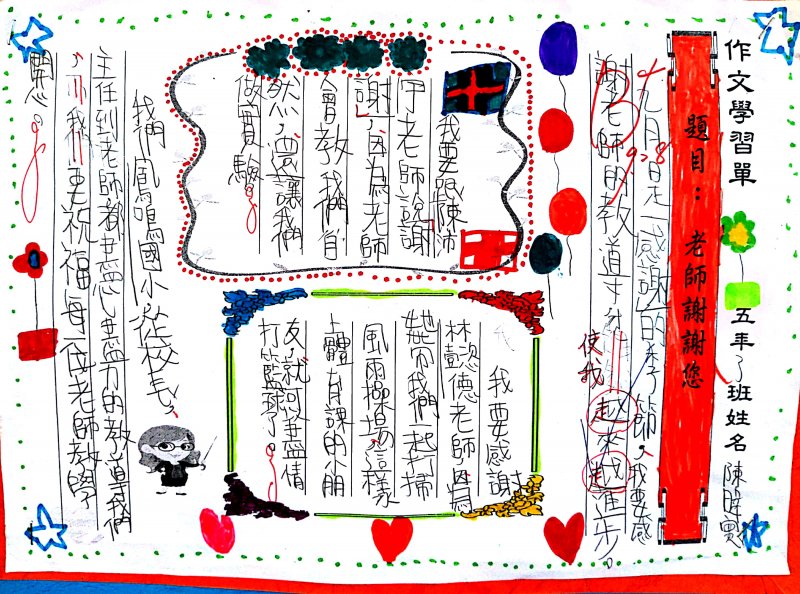 作文學習單 五年了班姓名
題目：老師謝謝您
九月是感謝的季節，我要感
謝老師的教導 使我越來越進步。
9.28
我要跟陳沛
老師說謝
謝，因為老師
會教我們自
然，還讓我們
做實驗。
我要感謝
林懿德老師，因為
她帶我們一起打掃
風雨操場，這樣
上體育課的小朋
友，就可以盡情
打籃球了。
我們鳳鳴國小從校長、
主任到老師都盡心盡力的教導我們
，我要祝福每一位老師教學
開心。